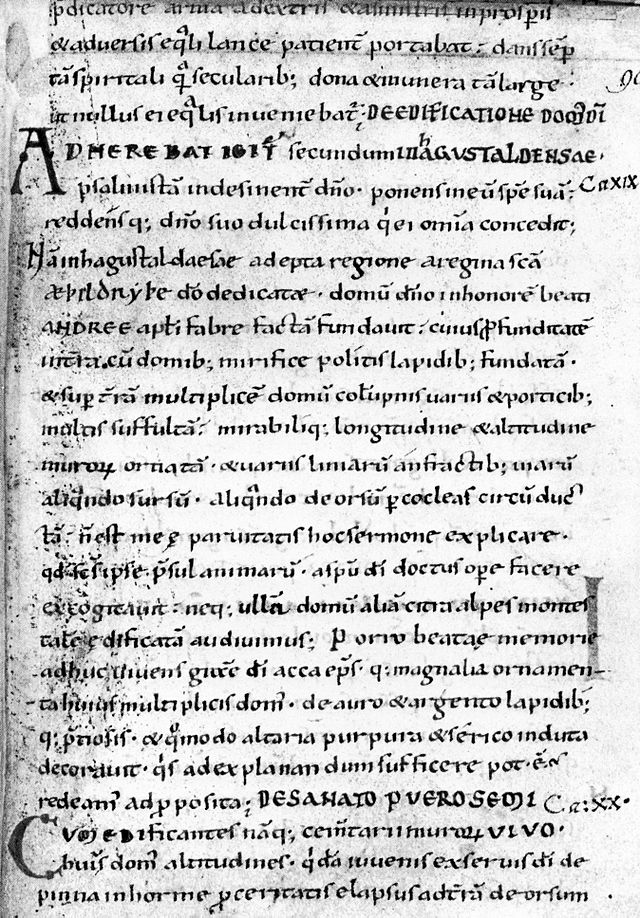 p̄dicatore arma adextris & asinistris inprosp̄is
& adversis eq̄li lance patient̄ portabat; dans sēp
tā spiritali q̄ secularib; dona & munera tā large
ut nullus ei eq̄lis inveniebat̄; DE EDIFICATIONE DOM̄ DĪ
ADHEREBAT IGIT̄ secundum IN HAGUSTALDENSAE·
psalmistā indesinent̄ dn̄o· ponens in eū spē suā· Ca XIX
reddensq; dn̄o suo dulcissima q̄ ei omīa concedit;
Nā in hagustaldaesae adepta regione a regina scā
æþildryþe dō dedicatæ· domū dn̄o in honorē beati
ANDREE apl̄i fabre factā fundavit: cuius p̄funditatē
in t̄ra cū domib; mirifice politis lapidib; fundatā·
& sup̄ t̄rā multiplicē domū colūpnis variis & porticib;
multis suffultā: mirabiliq; longitudine & altitudine
muroꝝ ornatā· & variis linearū anfractib; viarū
aliq̄ndo sursū· aliq̄ndo deorsū ꝑ cocleas circūduct̄
tā: n̄ est meę parvitatis hoc sermone explicare·
qd̄ sc̄s ipse p̄sul animarū· a spū dī doctus opere facere
excogitavit: neq; ullā domū aliā citra alpes montes
talē ędificatā audivimus; Porro beatae memorie
adhuc vivens grat̄ dī acca ep̄s· q; magnalia ornamen-
ta huius multiplicis dom̄· de auro & argento lapidib;
q; p̄tiosis· & q̄modo altaria purpura & serico induta
decoravit· q̄s ad explanandum sufficere pot ēst
redeam̄ ad p̄posita; DE SANATO PUERO SEMI Ca: XX·
CUM EDIficantes nāq; cem̄tarii muroꝝ VIVO·
huius dom̄ altitudines· q̄dā iuvenis ex servis dī de
pinna in horme ꝓceritatis elapsus ad t̄rā deorsum